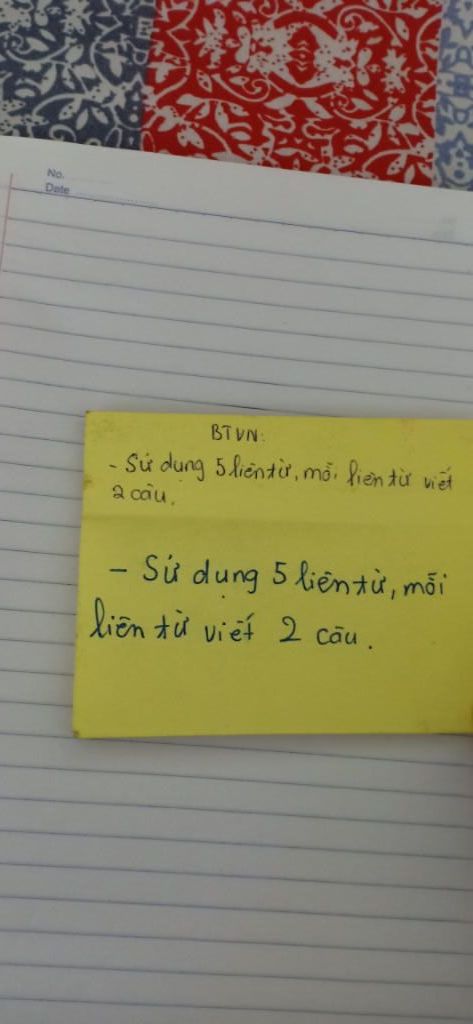 No.
Date
BTVN:
- Sử dụng 5 liên từ, mỗi liên từ viết
2 câu.
- Sử dụng 5 liên từ, mỗi
liên từ viết 2 câu.